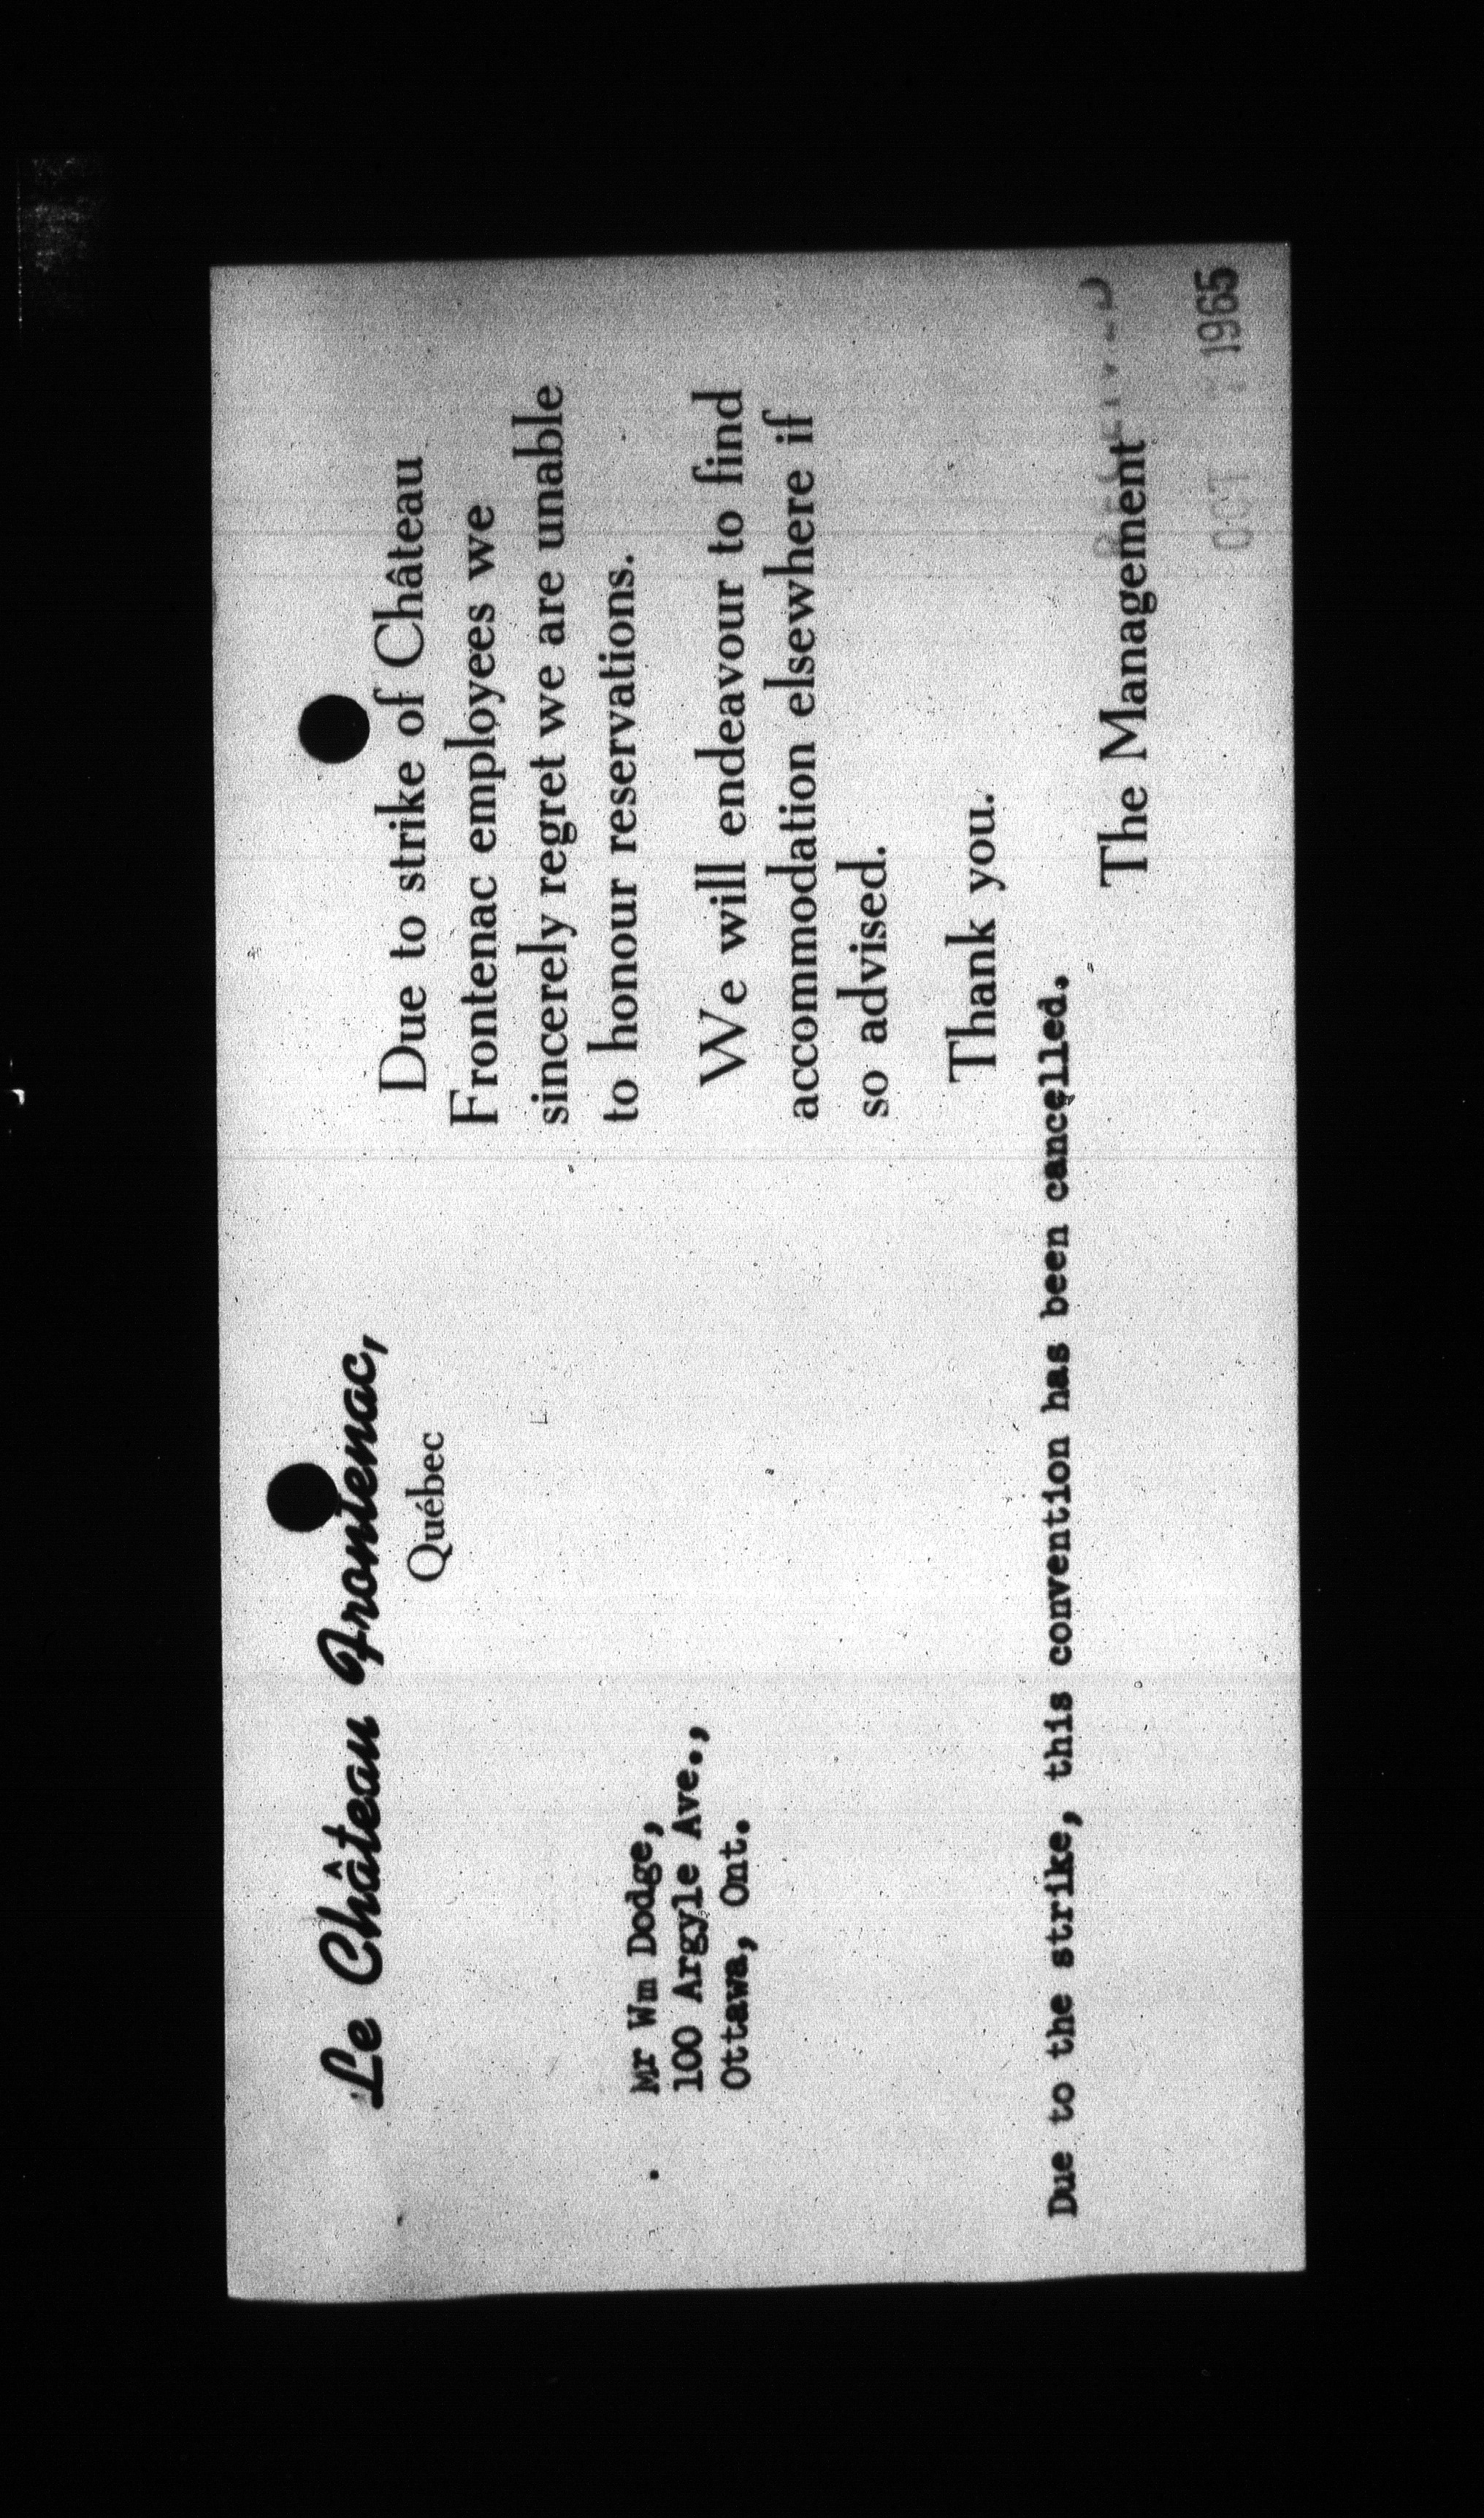 Le Château Frontenac,
Québec
Mr Wm Dodge,
100 Argyle Ave.,
Ottawa, Ont.
Due to strike of Château
Frontenac employees we
sincerely regret we are unable
to honour reservations.
We will endeavour to find
accommodation elsewhere if
so advised.
Thank you.
Due to the strike, this convention has been cancelled.
The Management
RECEIVED
OCT 1965